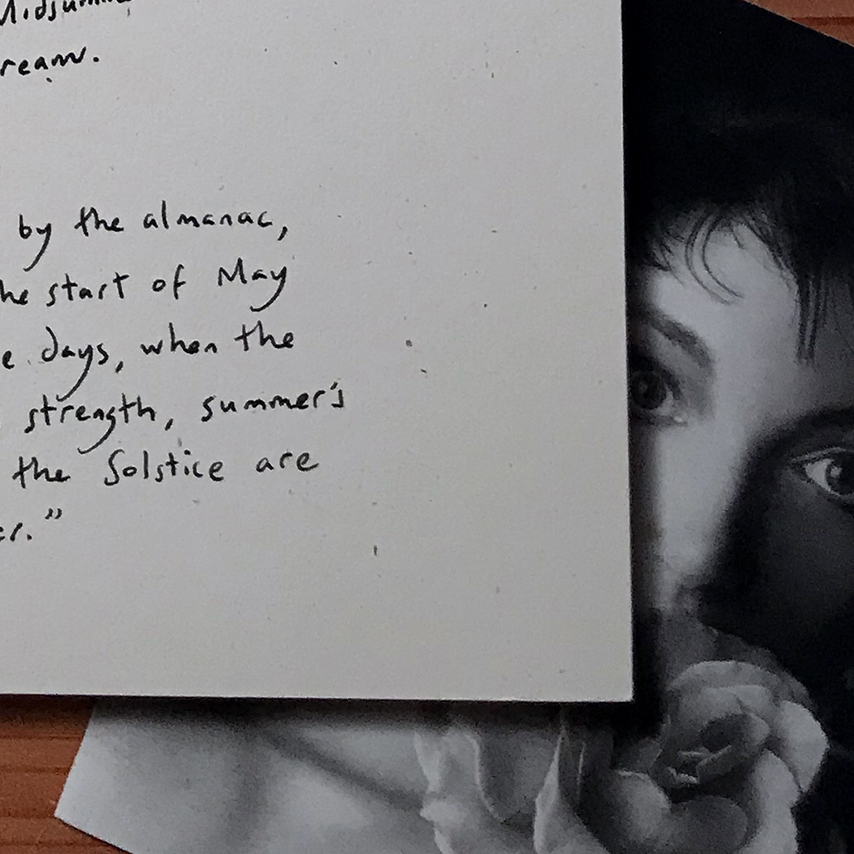 Midsumm
ream.
by the almanac,
he start of May
e days, when the
strength, summer's
the Solstice are
er."